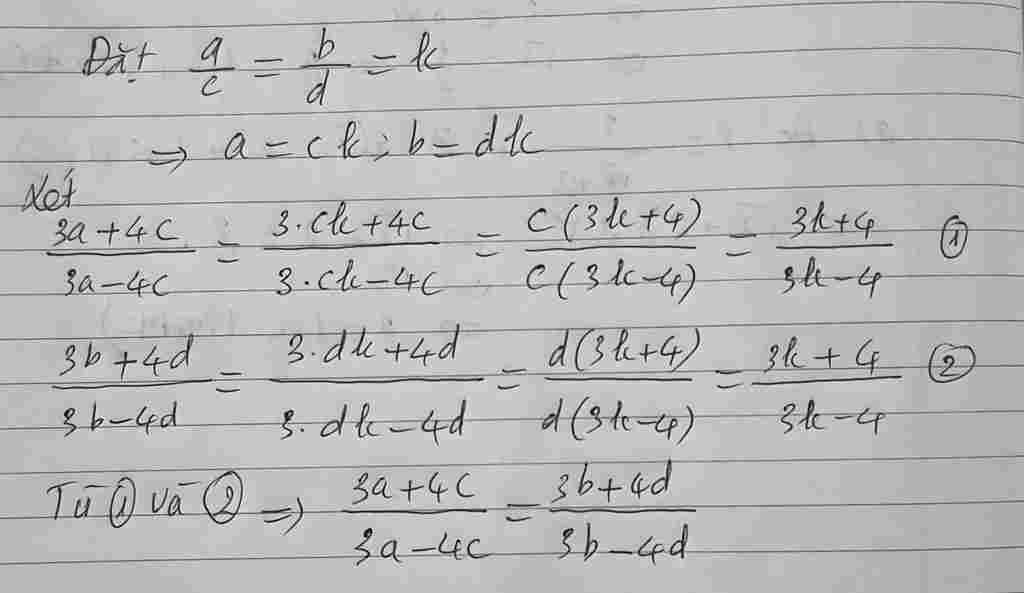 Đặt a/c = b/d = k
⇒ a = ck; b = dk
Xét
(3a+4c)/(3a-4c) = (3.ck+4c)/(3.ck-4c) = c(3k+4)/c(3k-4) = (3k+4)/(3k-4) ①
(3b+4d)/(3b-4d) = (3.dk+4d)/(3.dk-4d) = d(3k+4)/d(3k-4) = (3k+4)/(3k-4) ②
Từ ① và ② ⇒ (3a+4c)/(3a-4c) = (3b+4d)/(3b-4d)